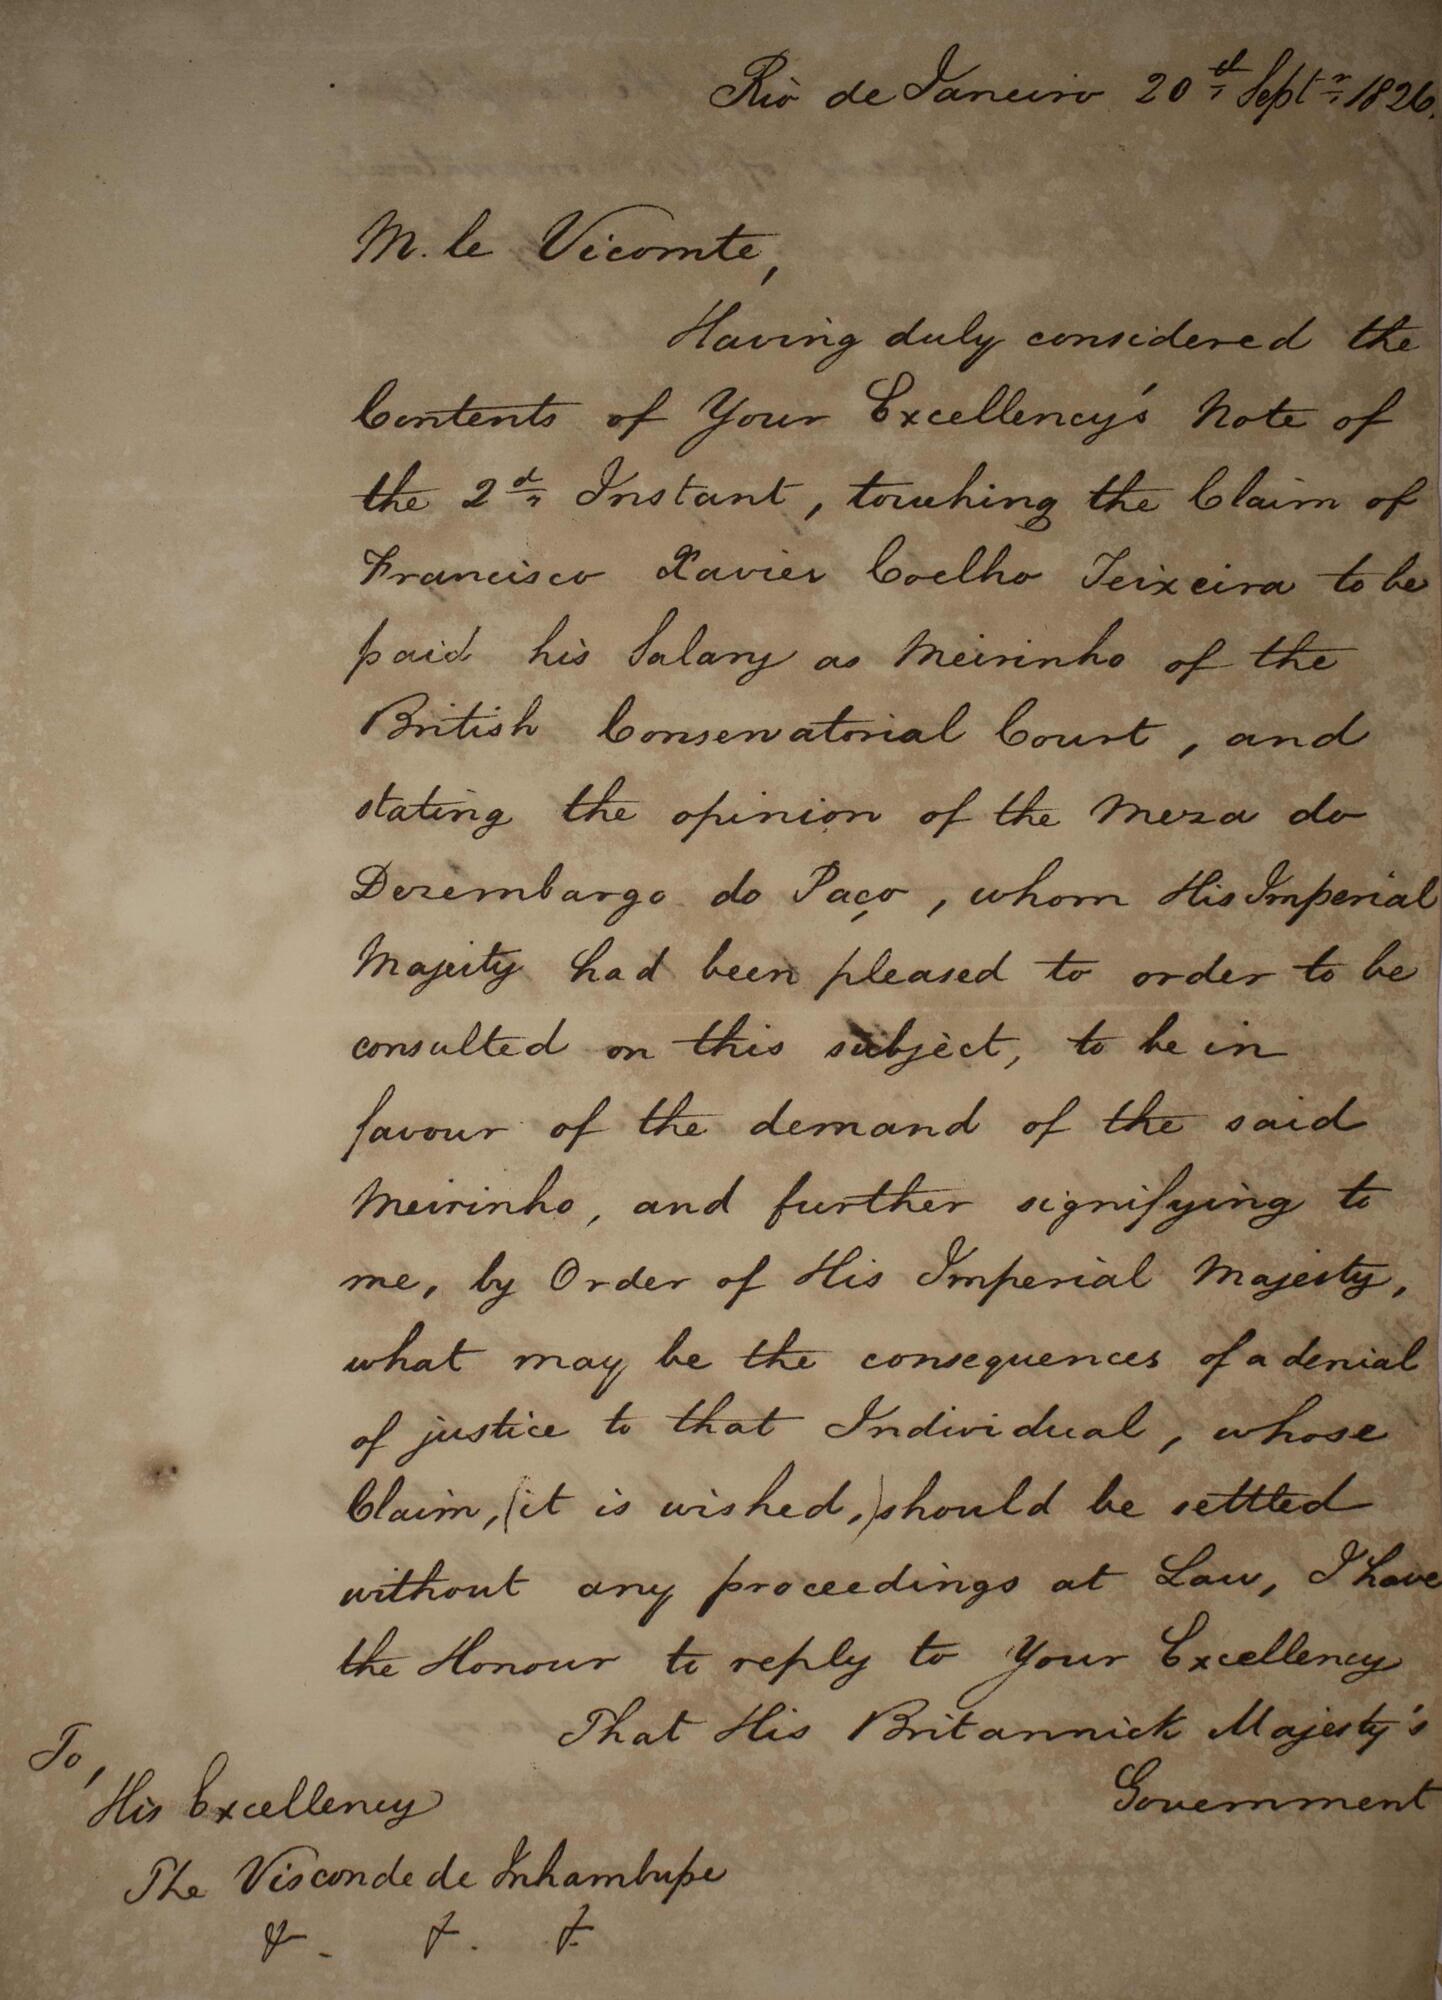 Rio de Janeiro 20th Septr 1826.
M. le Vicomte,
Having duly considered the
Contents of Your Excellency's Note of
the 2d Instant, touching the Claim of
Francisco Xavier Coelho Teixeira to be
paid his Salary as Meirinho of the
British Conservatorial Court, and
stating the opinion of the Meza do
Dezembargo do Paço, whom His Imperial
Majesty had been pleased to order to be
consulted on this subject, to be in
favour of the demand of the said
Meirinho, and further signifying to
me, by Order of His Imperial Majesty,
what may be the consequences of a denial
of justice to that Individual, whose
Claim, (it is wished,) should be settled
without any proceedings at Law, I have
the Honour to reply to Your Excellency
That His Britannick Majesty's
Government
To,
His Excellency
The Visconde de Inhambupe
&. &. &.